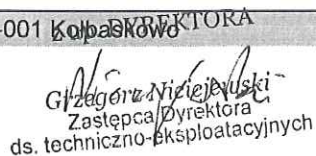 -001 Kołbaskowo
DYREKTORA
Grzegorz Niciejewski
Zastępca Dyrektora
ds. techniczno-eksploatacyjnych